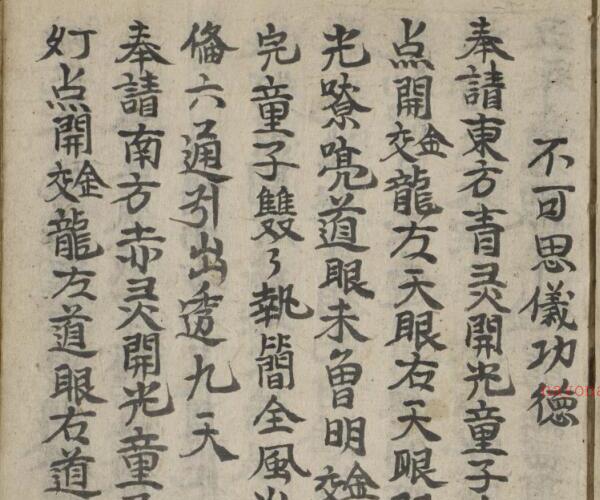 不可思儀功德
奉請東方青灵開光童子
点開鉸龍左天眼右天眼
光嘹喨道眼未曾明鉸
完童子雙々執簡全風
俻六通引出透九天
奉請南方赤灵開光童
灯点開鉸龍左道眼右道